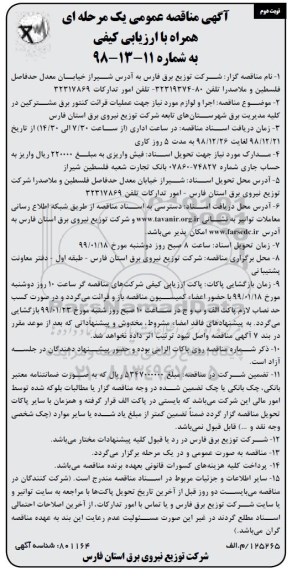 نوبت دوم
آگهی مناقصه عمومی یک مرحله ای
همراه با ارزیابی کیفی
به شماره ۱۱-۱۳-۹۸
۱- نام مناقصه گزار: شرکت توزیع برق فارس به آدرس شیراز خیابان معدل حدفاصل
فلسطین و ملاصدرا تلفن ۸۰-۳۲۳۱۹۳۷۴ تلفن امور تدارکات ۳۲۳۱۷۸۶۹
۲- موضوع مناقصه: اجرا و لوازم مورد نیاز جهت عملیات قرائت کنتور برق مشترکین در
کلیه مدیریت برق شهرستان‌های تابعه شرکت توزیع نیروی برق استان فارس
۳- زمان دریافت اسناد مناقصه: در ساعت اداری (از ساعت ۷/۳۰ الی ۱۴/۳۰) از تاریخ
۹۸/۱۲/۲۱ لغایت ۹۸/۱۲/۲۶ به مدت ۵ روز کاری
۴- مدارک مورد نیاز جهت تحویل اسناد: فیش واریزی به مبلغ ۲۲۰۰۰۰ ریال واریز به
حساب جاری شماره ۷۴۸۲۷-۰۷۸۶۰ بانک تجارت شعبه فلسطین شیراز
۵- آدرس محل تحویل اسناد: شیراز خیابان معدل حدفاصل فلسطین و ملاصدرا شرکت
توزیع نیروی برق استان فارس - امور تدارکات تلفن ۳۲۳۱۷۸۶۹
۶- آدرس محل دریافت اسناد: دسترسی به اسناد مناقصه از طریق شبکه اطلاع رسانی
معاملات توانیر به نشانی www.tavanir.org.ir و شرکت توزیع نیروی برق استان فارس به
آدرس www.farsedc.ir امکان پذیر می‌باشد.
۷- زمان تحویل اسناد: ساعت ۸ صبح روز دوشنبه مورخ ۹۹/۰۱/۱۸
۸- محل برگزاری مناقصه: شرکت توزیع نیروی برق استان فارس - طبقه اول - دفتر معاونت
پشتیبانی
۹- زمان بازگشایی پاکات: پاکت ارزیابی کیفی شرکت‌های مناقصه گر ساعت ۱۰ روز دوشنبه
مورخ ۹۹/۰۱/۱۸ با حضور اعضاء کمیسیون مناقصه باز و قرائت می‌گردد و در صورت کسب
حد نصاب لازم پاکت الف و ب و ج در ساعت ۱۰ صبح روز شنبه مورخ ۹۹/۰۱/۲۳ بازگشایی
می‌گردد. به پیشنهادهای فاقد امضاء، مشروط، مخدوش و پیشنهاداتی که بعد از موعد مقرر
در بند ۷ آگهی مناقصه واصل شود ترتیب اثر داده نخواهد شد.
۱۰- ذکر شماره مناقصه روی پاکات الزامی بوده و حضور پیشنهاد دهندگان در جلسه
آزاد است.
۱۱- تضمین شرکت در مناقصه: مبلغ ۵۳۴۷۰۰۰۰۰۰ ریال که به صورت ضمانتنامه معتبر
بانکی، چک بانکی یا چک تضمین شده در وجه مناقصه گزار یا مطالبات بلوکه شده توسط
امور مالی این شرکت می‌باشد که بایستی در پاکت الف قرار گرفته و همزمان با سایر پاکات
تحویل مناقصه گزار گردد ضمناً تضمین کمتر از مبلغ یاد شده یا سایر موارد (چک شخصی
وجه نقد و ...) قابل قبول نمی‌باشد.
۱۲- شرکت توزیع برق فارس در رد یا قبول کلیه پیشنهادات مختار می‌باشد.
۱۳- مناقصه به صورت عمومی و در یک مرحله برگزار می‌گردد.
۱۴- پرداخت کلیه هزینه‌های کسورات قانونی بعهده برنده مناقصه می‌باشد.
۱۵- سایر اطلاعات و جزئیات مربوط در اسناد مناقصه مندرج است. (شرکت کنندگان در
مناقصه می‌بایست دو روز قبل از آخرین تاریخ تحویل پاکت‌ها با مراجعه به سایت توانیر و
یا سایت شرکت توزیع برق فارس و یا تماس با امور تدارکات، از آخرین اصلاحات احتمالی
اسناد مطلع گردند در غیر این صورت مسئولیت عدم رعایت این بند به عهده مناقصه
گران می‌باشد.)
۱۲۵۲۶۵/م.الف
۸۰۱۱۶۴: شناسه آگهی
شرکت توزیع نیروی برق استان فارس